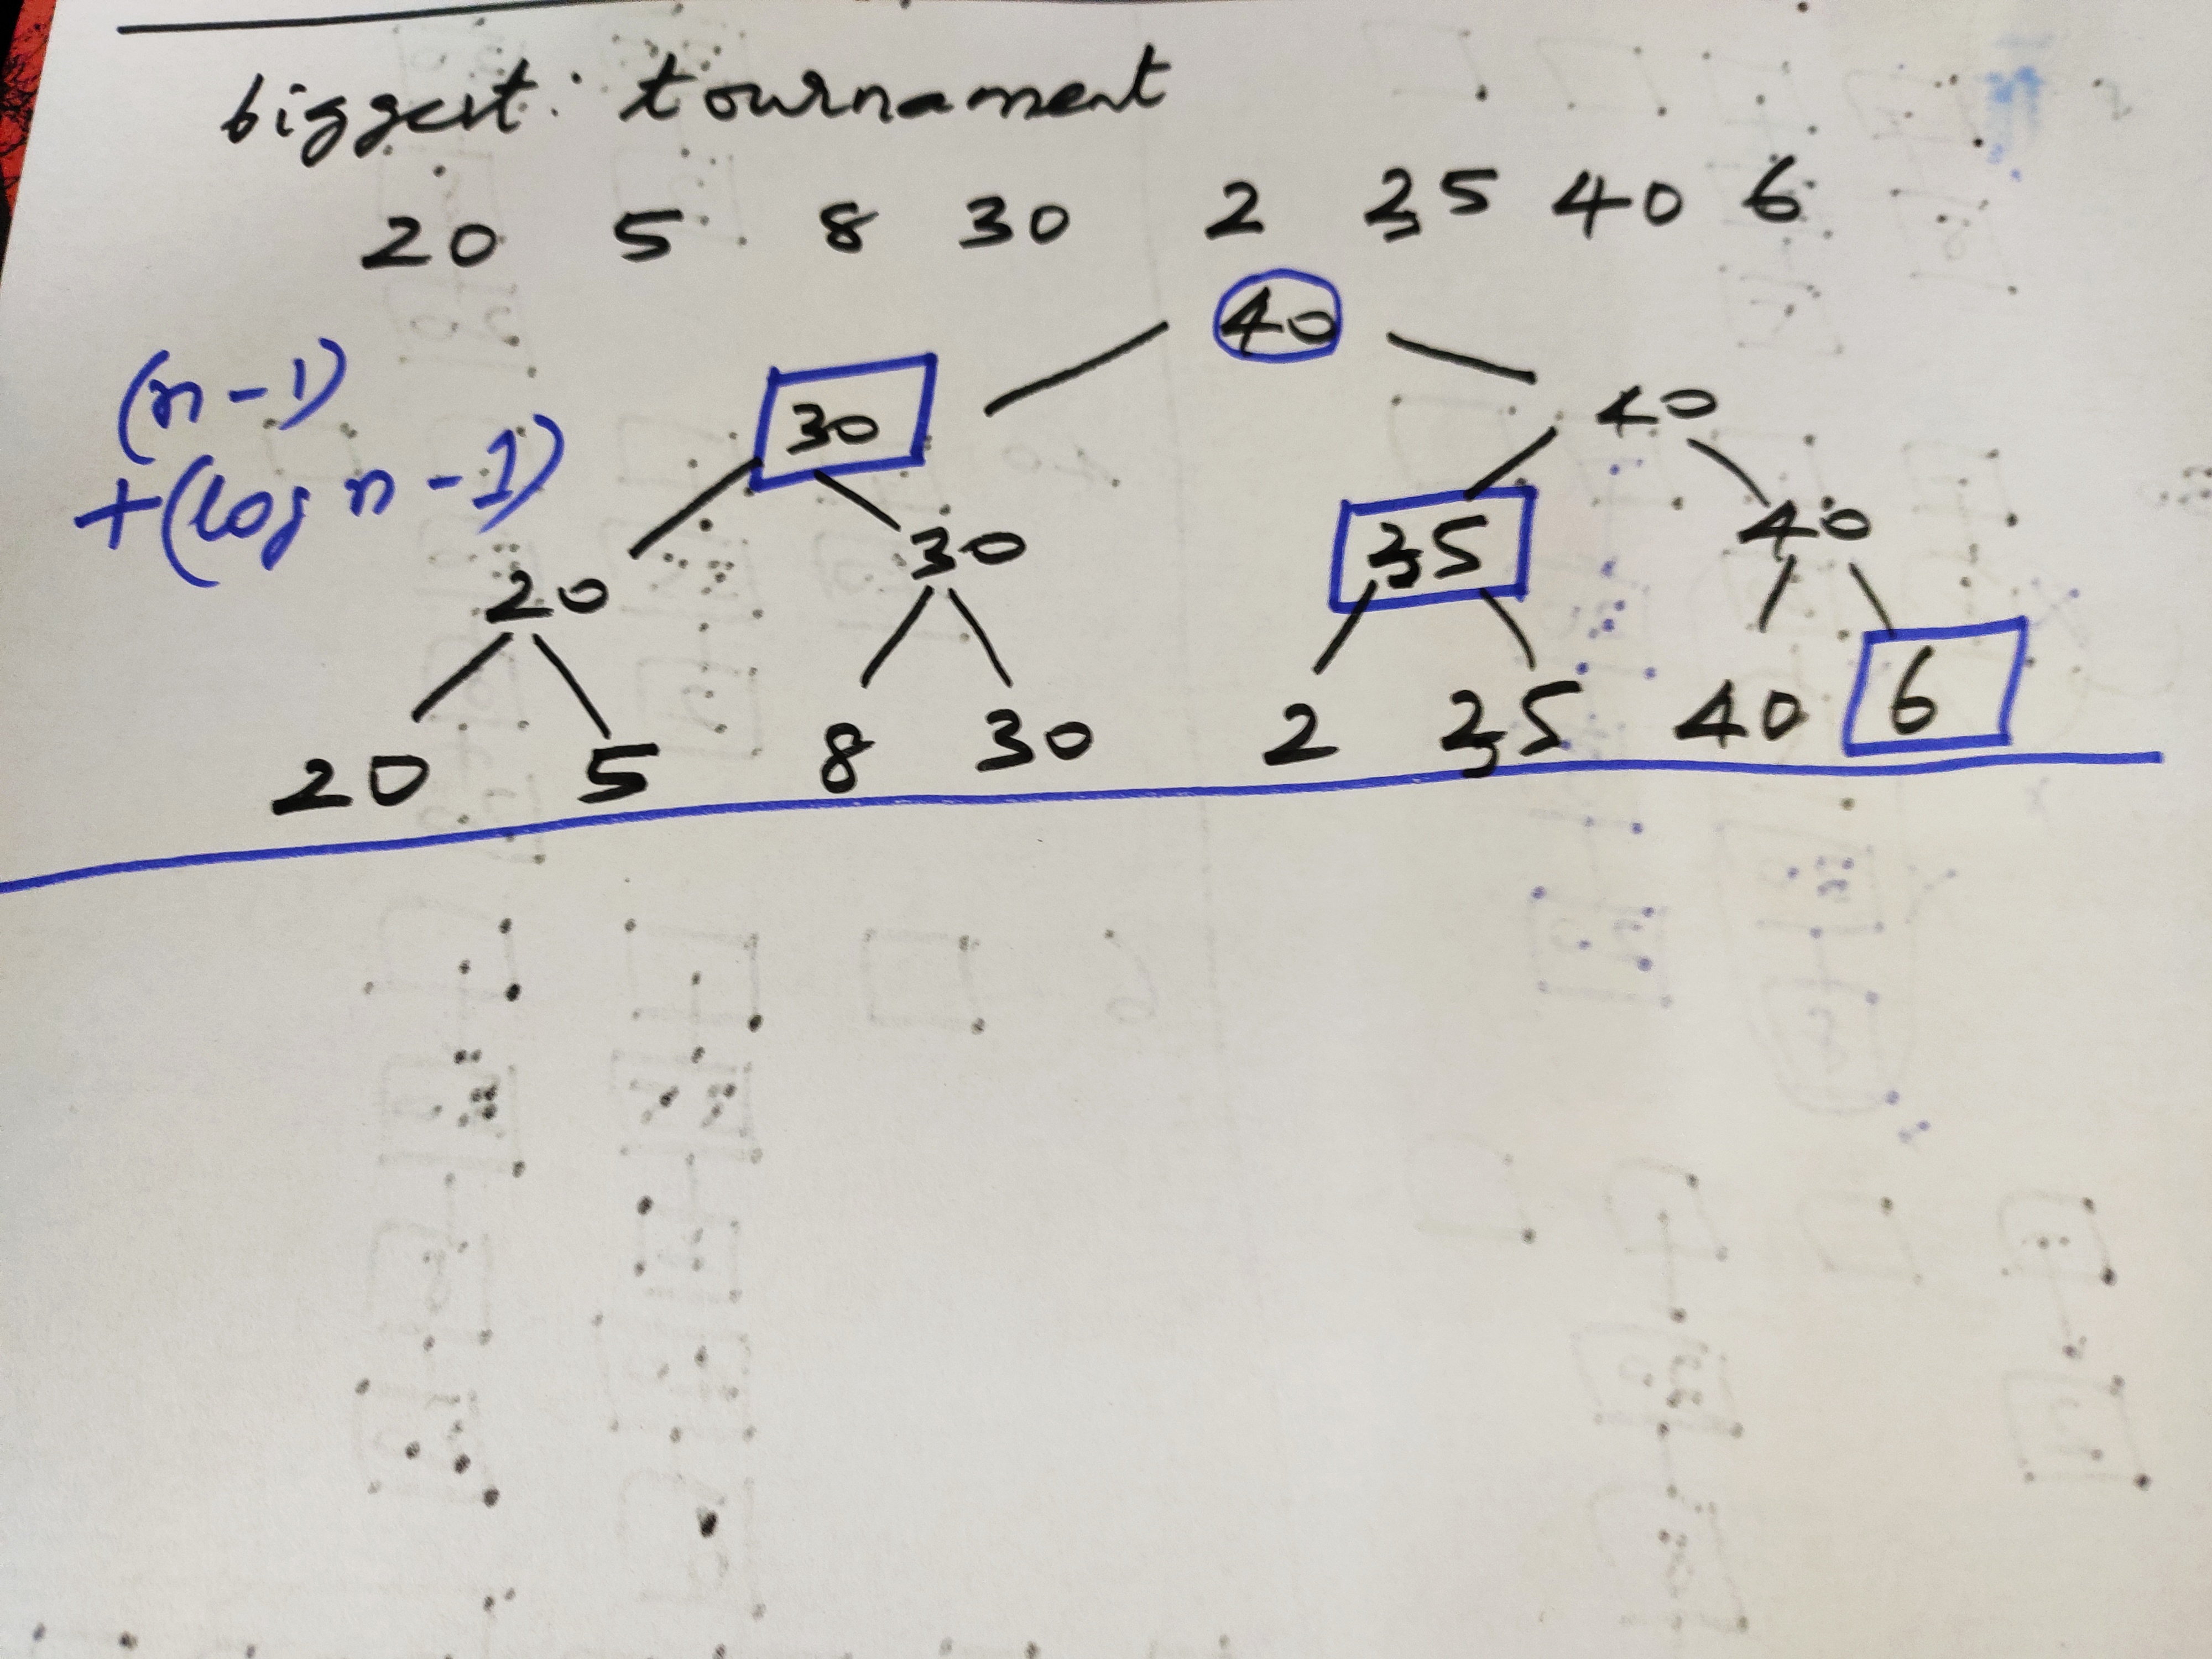 biggest: tournament
20 5 8 30 2 35 40 6
40
(n-1)
+(log n -1)
30 40
20 30 35 40
20 5 8 30 2 35 40 6